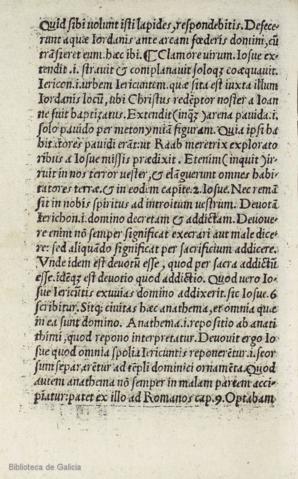 Quid sibi volunt isti lapides, respondebitis. Defece-
runt aquæ Iordanis ante arcam fœderis domini, cũ
trãsieret eum. hæc ibi. ¶ Clamore virum. Iosue ex-
tendit .i. stravit & complanavit soloq; coæquavit.
Iericon .i. urbem Iericuntem. quæ sita est iuxta illum
Iordanis locũ, ubi Christus redẽptor noster a Ioan
ne fuit baptizatus. Extendit (inqʒ) arena pavida .i.
solo pavido per metonymiã figuram. Quia ipsi ha
bitatores pavidi erant: ut Raab meretrix explorato
ribus a Iosue missis prædixit. Etenim (inquit) ir-
ruit in nos terror vester, & elãguerunt omnes habi-
tatores terræ. & in eodim capite. 2. Iosue. Nec remã
sit in nobis spiritus ad introitum vestrum. Devotã
Ierichon .i. domino decretam & addictam. Devove-
re enim nõ semper significat execrari aut male dice-
re: sed aliquãdo significat per sacrificium addicere.
Vnde idem est devotũ esse, quod per sacra addictũ
esse. idẽqʒ est devotio quod addictio. Quod vero Io-
sue Iericũtis exuvias domino addixerit. sic Iosue. 6
scribitur. Sitqʒ civitas hæc anathema, et omnia quæ
in ea sunt domino. Anathema .i. repositio ab anati
thimi, quod repono interpretatur. Devovit ergo Io
sue quod omnia spolia Iericuntis reponerẽtur .i. seor
sum separarẽtur ad tẽpli dominici ornamẽta. Quod
autem anathema nõ semper in malam partem acci-
piatur: patet ex illo ad Romanos cap. 9. Optabam
Biblioteca de Galicia